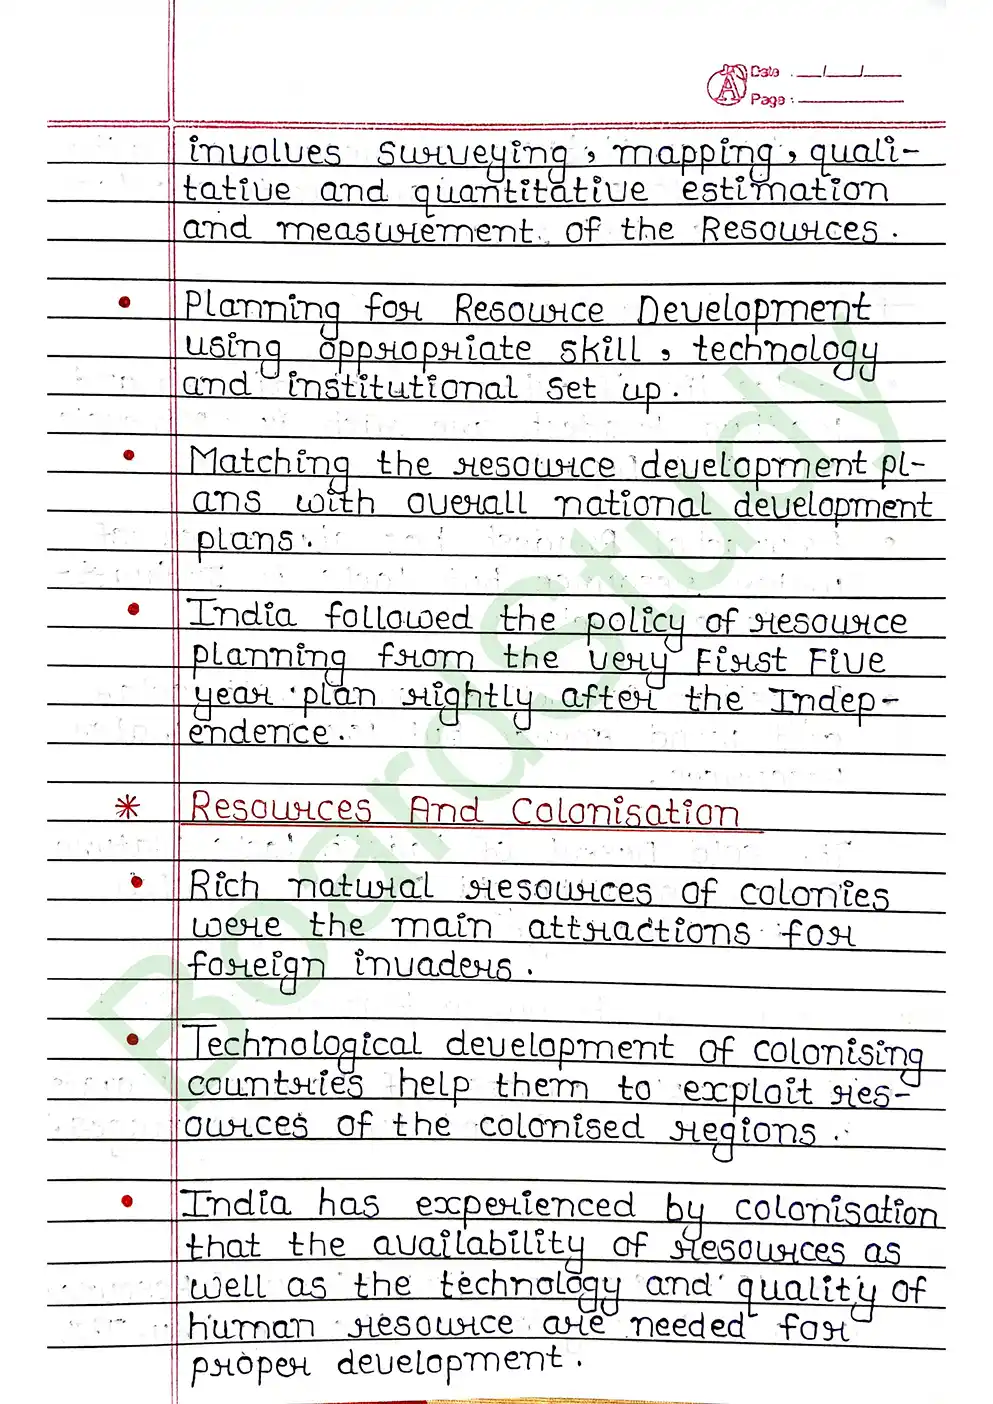 Date : __/__/__
Page :
involves surveying, mapping, quali-
tative and quantitative estimation
and measurement of the Resources.
• Planning for Resource Development
using appropriate skill, technology
and institutional set up.
• Matching the resource development pl-
ans with overall national development
plans.
• India followed the policy of resource
planning from the very First Five
year plan rightly after the Indep-
endence.
* Resources And Colonisation
• Rich natural resources of colonies
were the main attractions for
foreign invaders.
• Technological development of colonising
countries help them to exploit res-
ources of the colonised regions.
• India has experienced by colonisation
that the availability of resources as
well as the technology and quality of
human resource are needed for
proper development.
BoardStudy